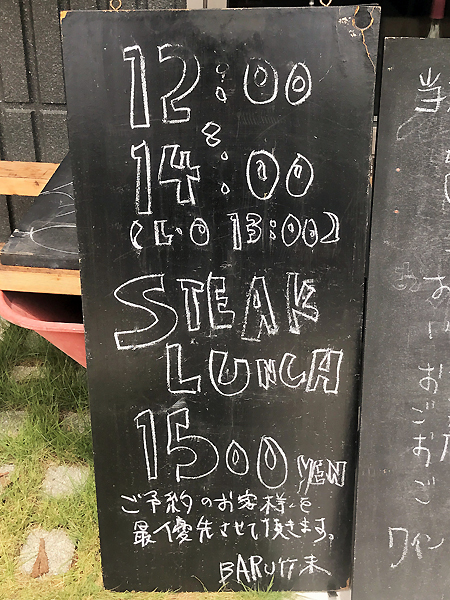 12:00
〜
14:00
(L.O 13:00)
STEAK
LUNCH
1500 YEN
ご予約のお客様を
最優先させて頂きます。
BARU竹末
当
お
い
お
ご
お
ご
ワイン